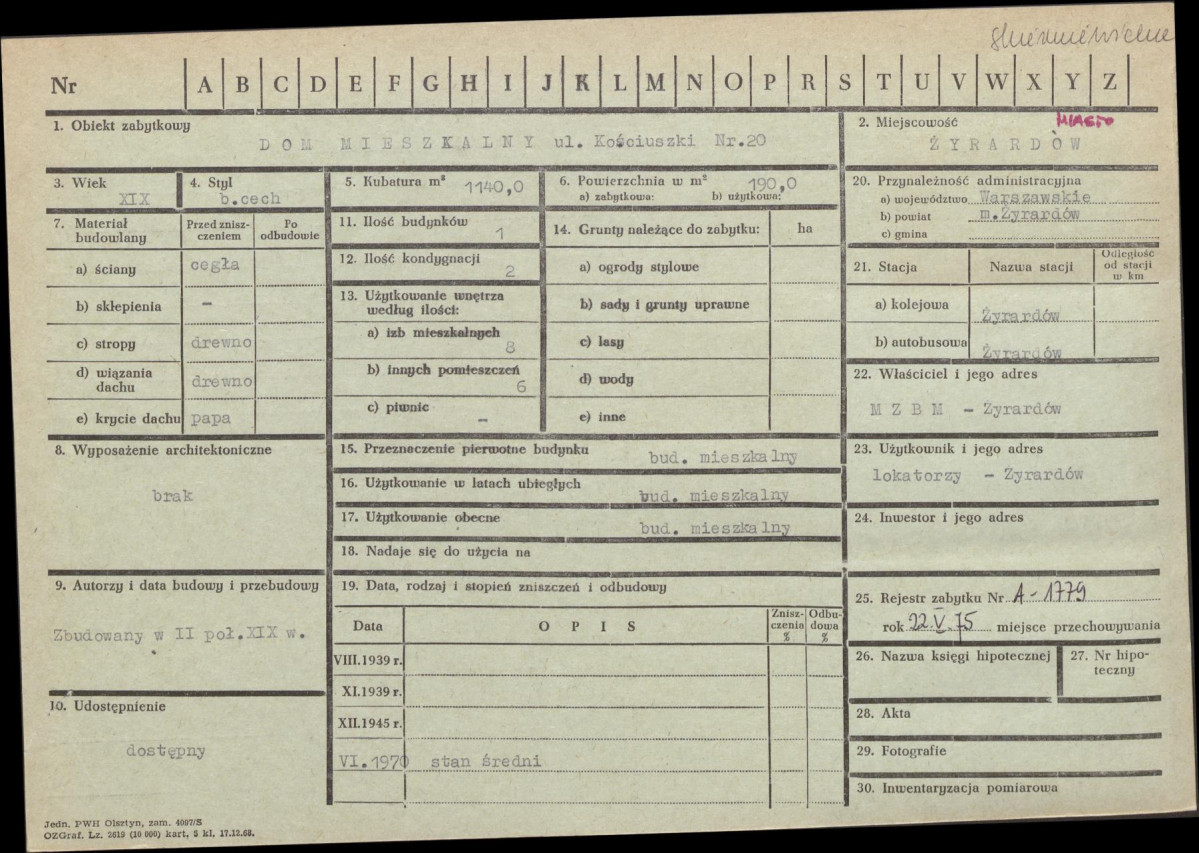 skierniewickie
Nr A B C D E F G H I J K L M N O P R S T U V W X Y Z
1. Obiekt zabytkowy
DOM MIESZKALNY ul. Kościuszki Nr.20
2. Miejscowość MIASTO
ŻYRARDÓW
3. Wiek
XIX
4. Styl
b.cech
5. Kubatura m³ 1140,0
6. Powierzchnia w m² 190,0
a) zabytkowa: b) użytkowa:
20. Przynależność administracyjna
a) województwo Warszawskie
b) powiat m.Żyrardów
c) gmina
7. Materiał budowlany
Przed zniszczeniem
Po odbudowie
a) ściany cegła
b) sklepienia –
c) stropy drewno
d) wiązania dachu drewno
e) krycie dachu papa
11. Ilość budynków 1
12. Ilość kondygnacji 2
13. Użytkowanie wnętrza według ilości:
a) izb mieszkalnych 8
b) innych pomieszczeń 6
c) piwnic –
14. Grunty należące do zabytku: ha
a) ogrody stylowe
b) sady i grunty uprawne
c) lasy
d) wody
e) inne
21. Stacja Nazwa stacji Odległość od stacji w km
a) kolejowa Żyrardów
b) autobusowa Żyrardów
22. Właściciel i jego adres
M Z B M – Żyrardów
8. Wyposażenie architektoniczne
brak
15. Przeznaczenie pierwotne budynku bud. mieszkalny
16. Użytkowanie w latach ubiegłych bud. mieszkalny
17. Użytkowanie obecne bud. mieszkalny
18. Nadaje się do użycia na
23. Użytkownik i jego adres
lokatorzy – Żyrardów
24. Inwestor i jego adres
9. Autorzy i data budowy i przebudowy
Zbudowany w II poł.XIX w.
19. Data, rodzaj i stopień zniszczeń i odbudowy
Data OPIS Zniszczenia % Odbudowa %
VIII.1939 r.
XI.1939 r.
XII.1945 r.
VI.1970 stan średni
25. Rejestr zabytku Nr A-1779
rok 22.V.75 miejsce przechowywania
26. Nazwa księgi hipotecznej
27. Nr hipoteczny
10. Udostępnienie
dostępny
28. Akta
29. Fotografie
30. Inwentaryzacja pomiarowa
Jedn. PWH Olsztyn, zam. 4097/S
OZGraf. Lz. 2619 (10 000) kart, 5 kl, 17.12.68.